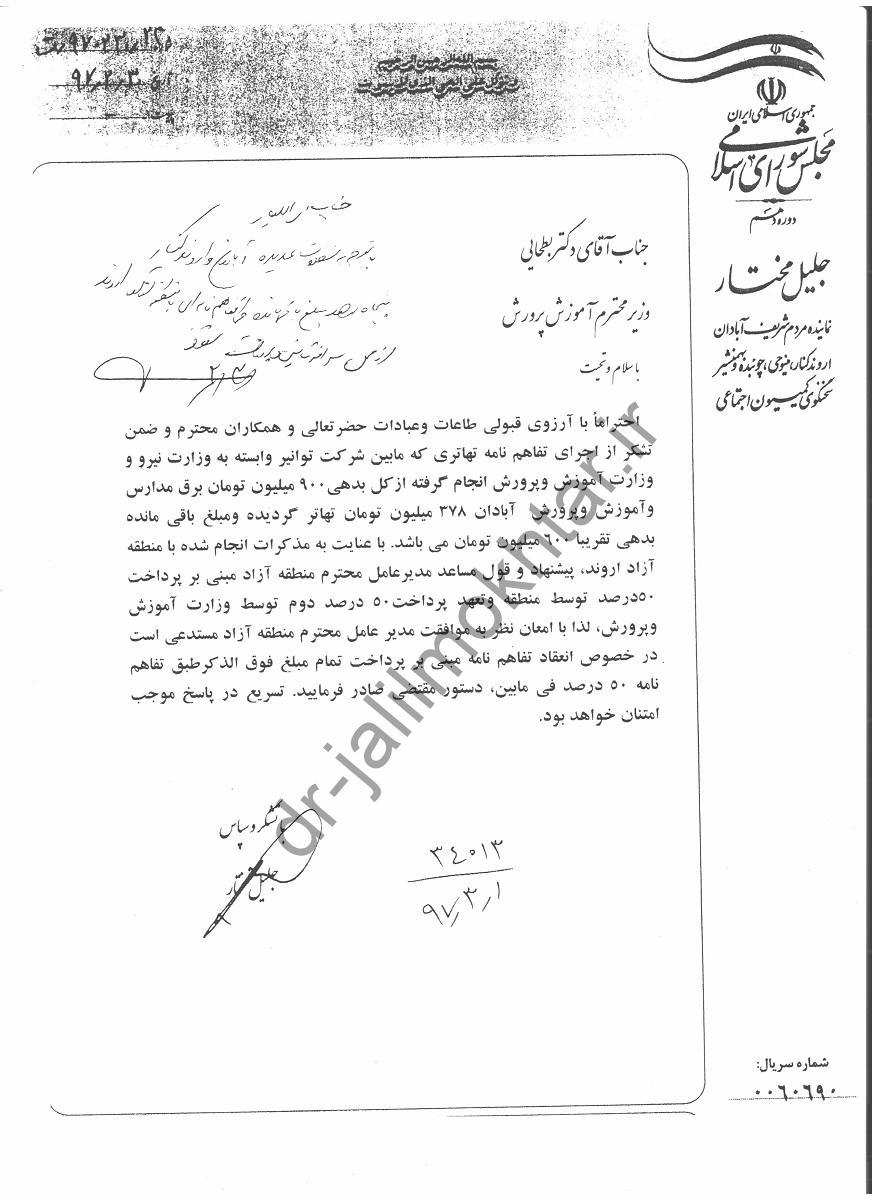 جمهوری اسلامی ایران
مجلس شورای اسلامی
دوره دهم
جلیل مختار
نماینده مردم شریف آبادان
اروندکنار، مینوحی، چوئبده و بهمنشیر
سخنگوی کمیسیون اجتماعی
۹۷/۲/۳۰
جناب آقای دکتر بطحایی
وزیر محترم آموزش پرورش
با سلام و تحیت
احتراماً با آرزوی قبولی طاعات وعبادات حضرتعالی و همکاران محترم و ضمن
تشکر از اجرای تفاهم نامه تهاتری که مابین شرکت توانیر وابسته به وزارت نیرو و
وزارت آموزش وپرورش انجام گرفته ازکل بدهی ۹۰۰ میلیون تومان برق مدارس
وآموزش وپرورش آبادان ۳۷۸ میلیون تومان تهاتر گردیده ومبلغ باقی مانده
بدهی تقریبا ۶۰۰ میلیون تومان می باشد. با عنایت به مذکرات انجام شده با منطقه
آزاد اروند، پیشنهاد و قول مساعد مدیرعامل محترم منطقه آزاد مبنی بر پرداخت
۵۰درصد توسط منطقه وتعهد پرداخت۵۰ درصد دوم توسط وزارت آموزش
وپرورش، لذا با امعان نظر به موافقت مدیر عامل محترم منطقه آزاد مستدعی است
در خصوص انعقاد تفاهم نامه مبنی بر پرداخت تمام مبلغ فوق الذکرطبق تفاهم
نامه ۵۰ درصد فی مابین، دستور مقتضی صادر فرمایید. تسریع در پاسخ موجب
امتنان خواهد بود.
با تشکر و سپاس
جلیل مختار
۳۴۰۱۳
۹۷/۳/۱
شماره سریال:
۰۰۶۰۶۹۰
dr-jalilmokhtar.ir